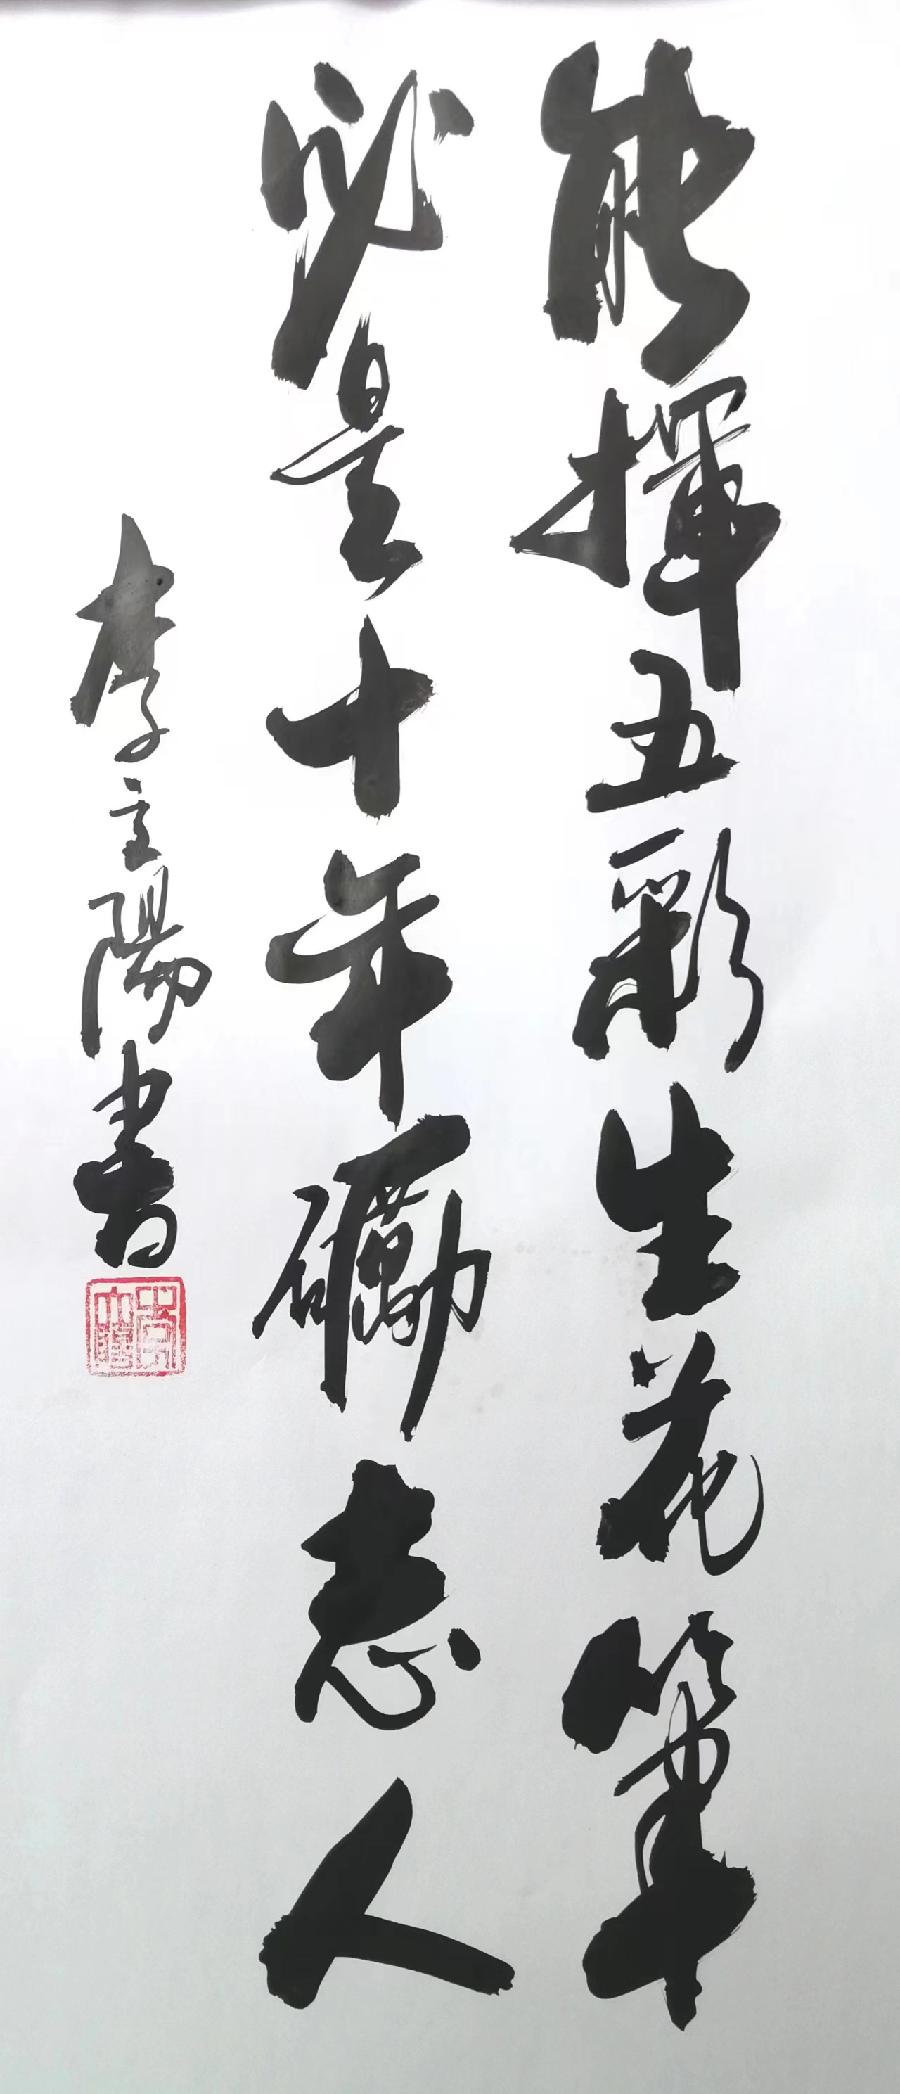 能揮五彩生花筆
必是十年礪志人
李主陽書